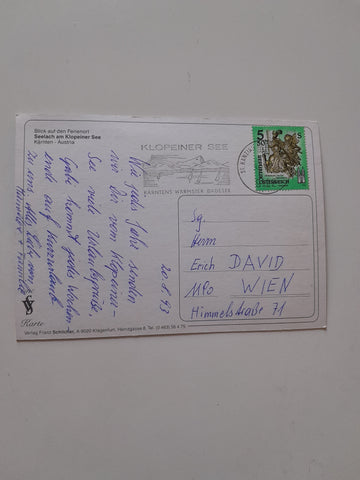 Blick auf den Ferienort
Seelach am Klopeiner See
Kärnten - Austria
KLOPEINER SEE
KÄRNTENS WÄRMSTER BADESEE
5
50
S
REPUBLIK
ÖSTERREICH
20. 8. 93
Wie jedes Jahr senden
wir Dir vom Klopeiner-
See viele Urlaubsgrüße,
Gabi kommt jedes Wochen-
ende auf Kurzurlaub
zu uns. Alles Liebe von
Sg.
Herrn
Erich DAVID
1190 WIEN
Himmelstraße 71
Karte
Verlag Franz Schilcher, A 9020 Klagenfurt, Herrengasse 8, Tel. (0 463) 56 4 75